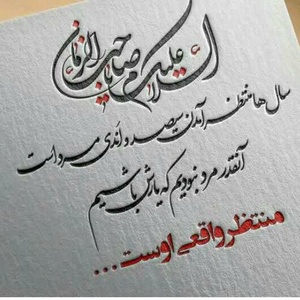 السلام علیک یا صاحب الزمان
سال ها منتظر آمدن سیصد و اندی مرد است
آنقدر مرد نبودیم که یارش باشیم
منتظر واقعی اوست ...